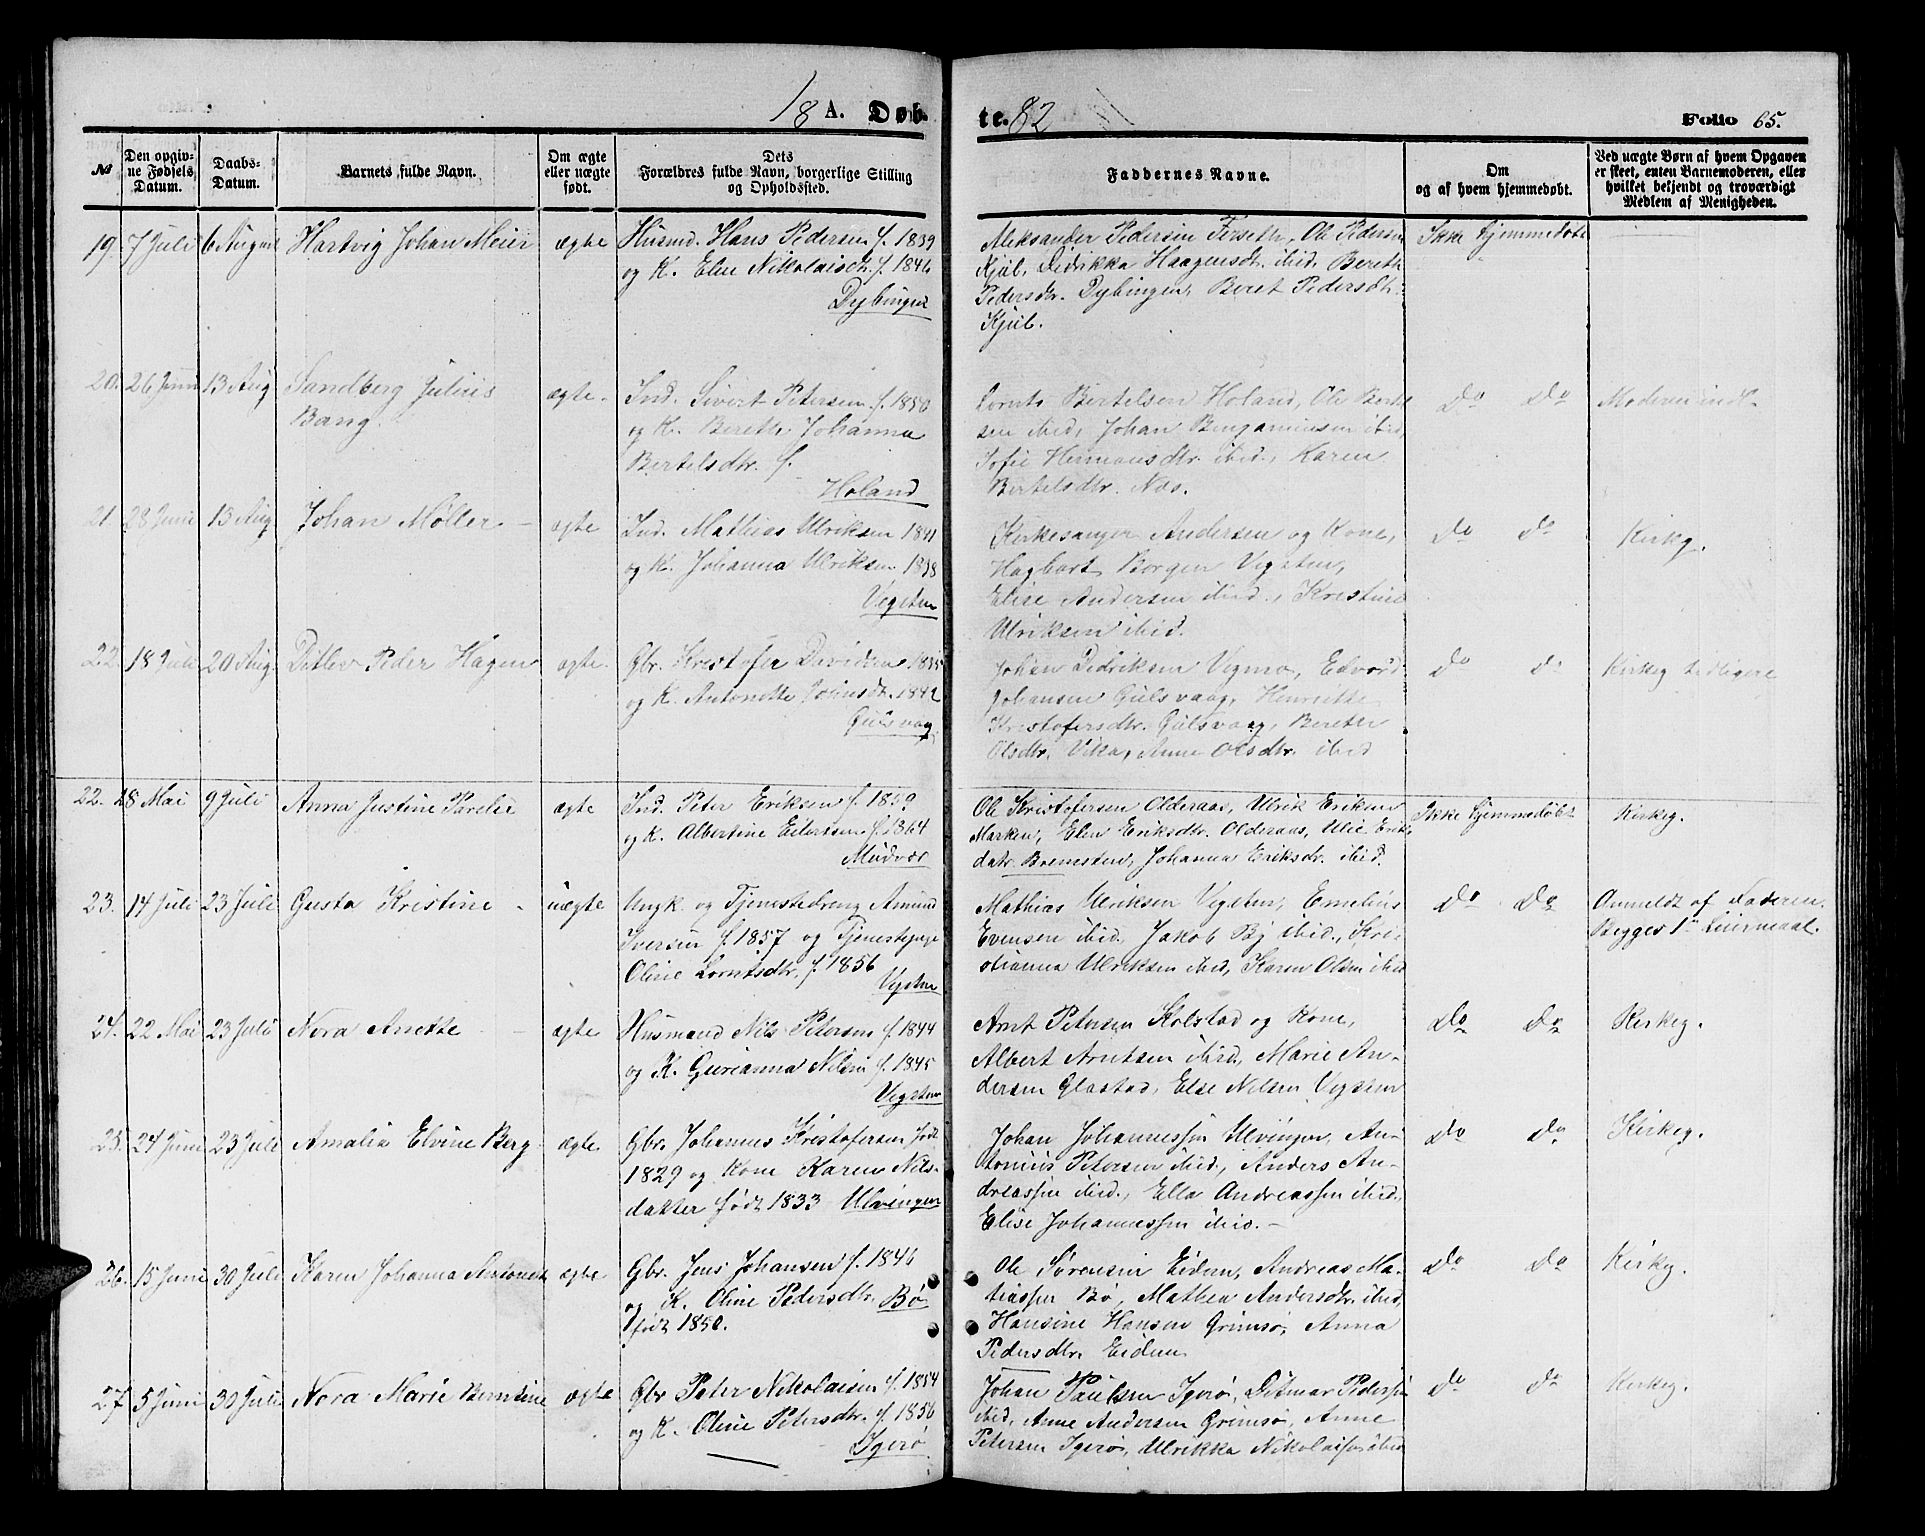 18 A. Døb-
te. 82
Folio 65.
№
Den opgiv-
ne Fødsels
Datum.
Daabs-
Datum.
Barnets fulde Navn.
Om ægte
eller uægte
født.
Dets
Forældres fulde Navn, borgerlige Stilling
og Opholdssted.
Faddernes Navne.
Om
og af hvem hjemmedøbt.
Ved uægte Børn af hvem Opgaven
er skeet, enten Barnemoderen, eller
hvilket bekjendt og troværdigt
Medlem af Menigheden.
19. 7 Juli 6 August Hartvig Johan Meier ægte
Husmd. Hans Pedersen f. 1839
og K. Elen Nikolaisdtr. f. 1846
Dybingen
Aleksander Pedersen Forseth, Ole Pedersen
Kjul, Didrikka Haagensdtr. ibid. Bereth
Pedersdtr. Dybingen, Beret Pedersdtr.
Kjul.
Ikke hjemmedøbt
20. 26 Juni 13 Aug Sandberg Julius
Bang.
ægte.
Ind. Sivert Petersen f. 1850
og K. Bereth Johanna
Bertelsdtr. f.
Holand
Lornts Bertelsen Holand, Ole Bertel
sen ibid, Johan Bengaminsen ibid,
Sofie Hermansdtr. ibid., Karen
Bertelsdtr. Nos.
Do Do
Moderen indl-
21. 28 Juni 13 Aug Johan Møller - ægte
Ind. Mathias Ulriksen 1841
og K. Johanna Ulriksen 1838
Vegsten
Kirkesanger Andersen og Kone,
Hagbart Borgen Vegsten,
Elise Andersen ibid., Kristine
Ulriksen ibid.
Do Do
Kirkg.
22. 18 Juli 20 Aug Ditlev Peder Hagen ægte.
Gbr. Kristofer Davidsen 1835
og K. Antonette Johnsdtr. 1842
Gulsvaag
Johan Didriksen Vegmo, Edvard
Johansen Gulsvaag, Henriette
Kristofersdtr. Gulsvaag, Berette
Olsdtr. Vika, Anne Olsdtr. ibid
Do Do
Kirkeg tidligere
22. 28 Mai 9 Juli Anna Justine Parelie ægte
Ind. Peter Eriksen f. 1859
og K. Albertine Eilertsen f. 1864
Mudvær
Ole Kristofersen Olderaas, Ulrik Eriksen
Marken, Elen Eriksdtr. Olderaas, Ulie Erik
datr. Bremsten, Johanna Eriksdr. ibid.
Ikke hjemmedøbt
Kirkeg.
23. 14 Juli 23 Juli Gusta Kristine - uægte
Ungk. og Tjenestedreng Amund
Iversen f. 1857 og Tjenestepige
Oline Lorntsdtr. f. 1856
Vegsten
Mathias Ulriksen Vegsten, Emelius
Evensen ibid, Jakob Bj ibid., Kri-
stianna Ulriksen ibid, Karen Olsen ibid
Do Do
Anmeldt af Faderen.
Begges 1ste Leiermaal.
24. 22 Mai 23 Juli Nora Anette - ægte
Husmand Nils Petersen f. 1844
og K. Gurianna Nilsen f. 1845
Vegsten
Arnt Petersen Kolstad og Kone,
Albert Arntsen ibid, Marie An-
dersen Glastad, Else Nilsen Vegsten
Do Do
Kirkeg.
25. 24 Juni 23 Juli Amalia Elvine Berg ægte.
Gbr. Johannes Kristofersen født
1829 og Kone Karen Nils-
datter født 1833 Ulvingen
Johan Johannessen Ulvingen, An-
tonius Petersen ibid, Anders An-
dreassen ibid., Ella Andreassen ibid,
Elise Johannessen ibid. -
Do Do
Kirkeg.
26. 15 Juni 30 Juli Karen Johanna Antonette ægte
Gbr. Jens Johansen f. 1846
og K. Oline Pedersdtr. Bø
født 1850.
Ole Sørensen Eidem, Andreas Ma-
tiassen Bø, Mathea Andersdtr. ibid,
Hansine Hansen Grimsø, Anna
Pedersdtr. Eidem
Do Do
Kirkg.
27 5 Juni 30 Juli Nora Marie Berntine ægte
Gbr Peter Nikolaisen f. 1854
og K. Oline Petersdtr. f. 1856
Igerø
Johan Paulsen Igerø, Ditmar Pedersen
ibid, Anne Andersen Grimsø, Anne
Petersen Igerø, Ulrikka Nikolaisen ibid
Do Do
Kirkeg.